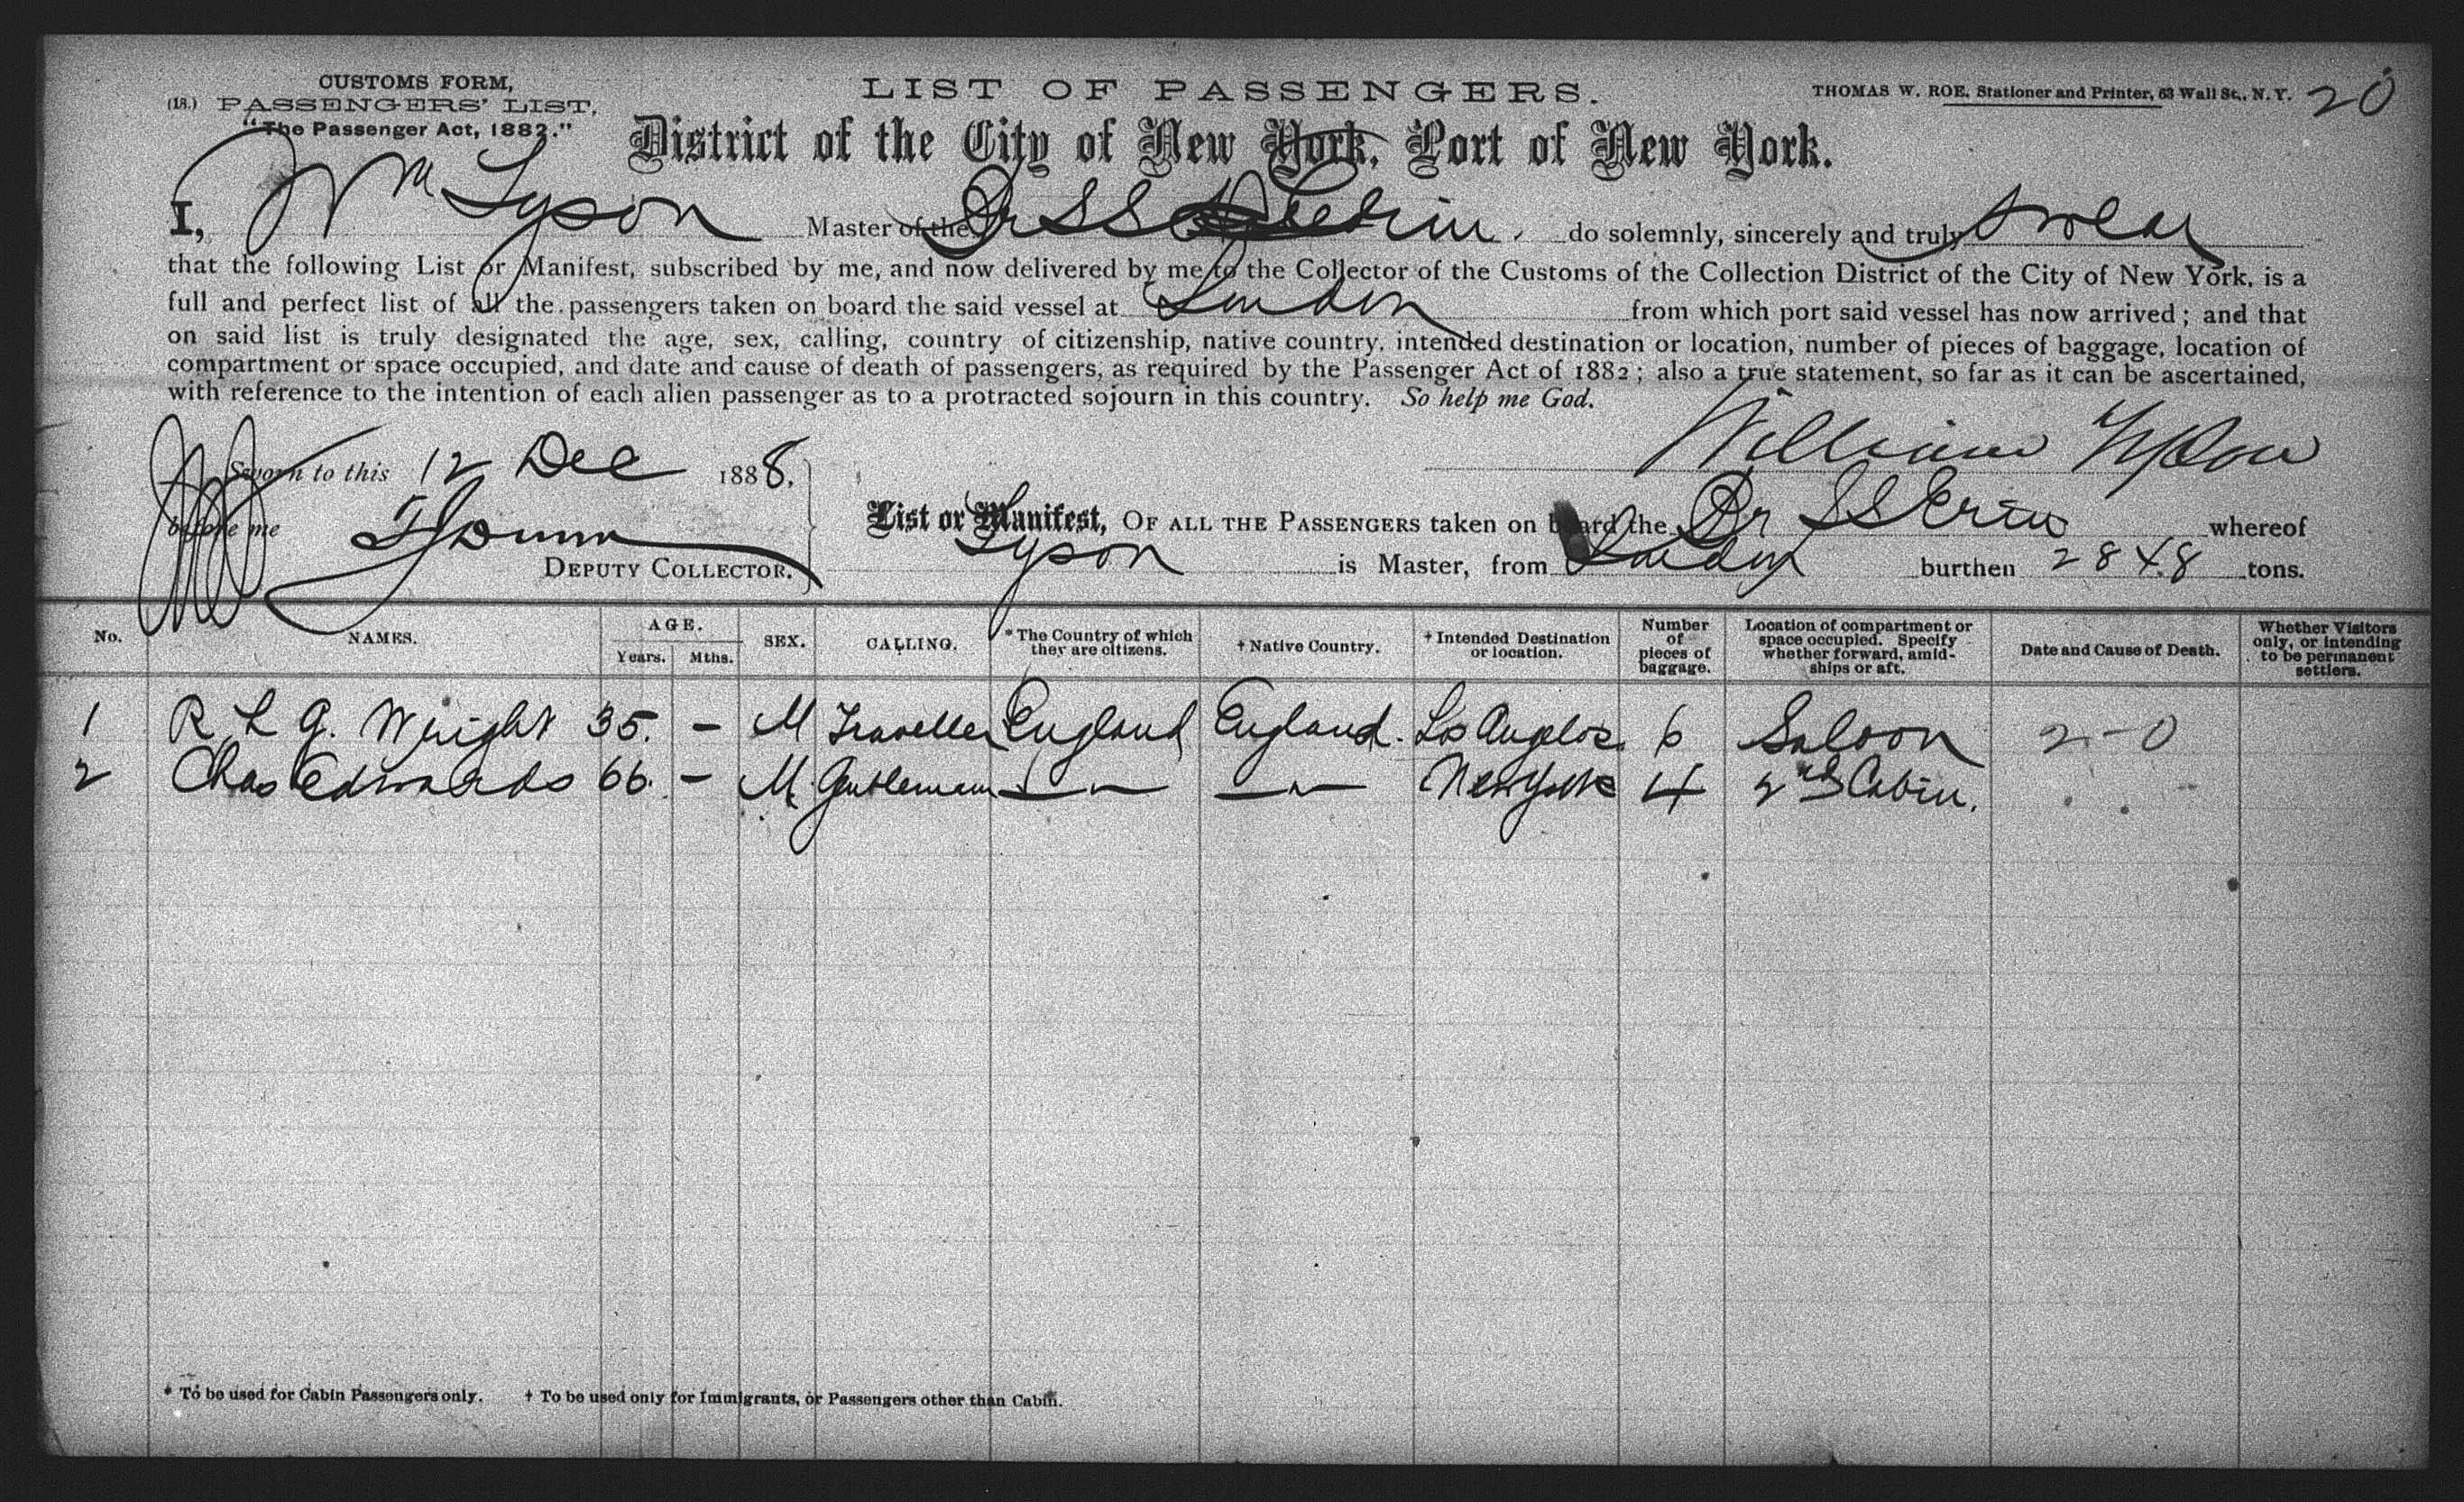 CUSTOMS FORM,
(18.) PASSENGERS' LIST,
"The Passenger Act, 1882."
LIST OF PASSENGERS.
THOMAS W. ROE, Stationer and Printer, 63 Wall St., N. Y.
20
District of the City of New York, Port of New York.
I, Wm Tyson Master of the Br SS Erin, do solemnly, sincerely and truly swear
that the following List or Manifest, subscribed by me, and now delivered by me to the Collector of the Customs of the Collection District of the City of New York, is a
full and perfect list of all the passengers taken on board the said vessel at London from which port said vessel has now arrived; and that
on said list is truly designated the age, sex, calling, country of citizenship, native country, intended destination or location, number of pieces of baggage, location of
compartment or space occupied, and date and cause of death of passengers, as required by the Passenger Act of 1882; also a true statement, so far as it can be ascertained,
with reference to the intention of each alien passenger as to a protracted sojourn in this country. So help me God.
William Tyson
Sworn to this 12 Dec 1888.
before me
DEPUTY COLLECTOR.
List or Manifest, OF ALL THE PASSENGERS taken on board the Br SS Erin whereof
Tyson is Master, from London burthen 2848 tons.
No. NAMES. AGE. Years. Mths. SEX. CALLING. * The Country of which they are citizens. † Native Country. † Intended Destination or location. Number of pieces of baggage. Location of compartment or space occupied. Specify whether forward, amidships or aft. Date and Cause of Death. Whether Visitors only, or intending to be permanent settlers.
1 R L G. Wright 35. – M Traveller England England. Los Angelos. 6 Saloon 2 - 0
2 Chas Edwards 66. – M. Gentleman —"— —"— New York 4 2nd Cabin.
* To be used for Cabin Passengers only. † To be used only for Immigrants, or Passengers other than Cabin.